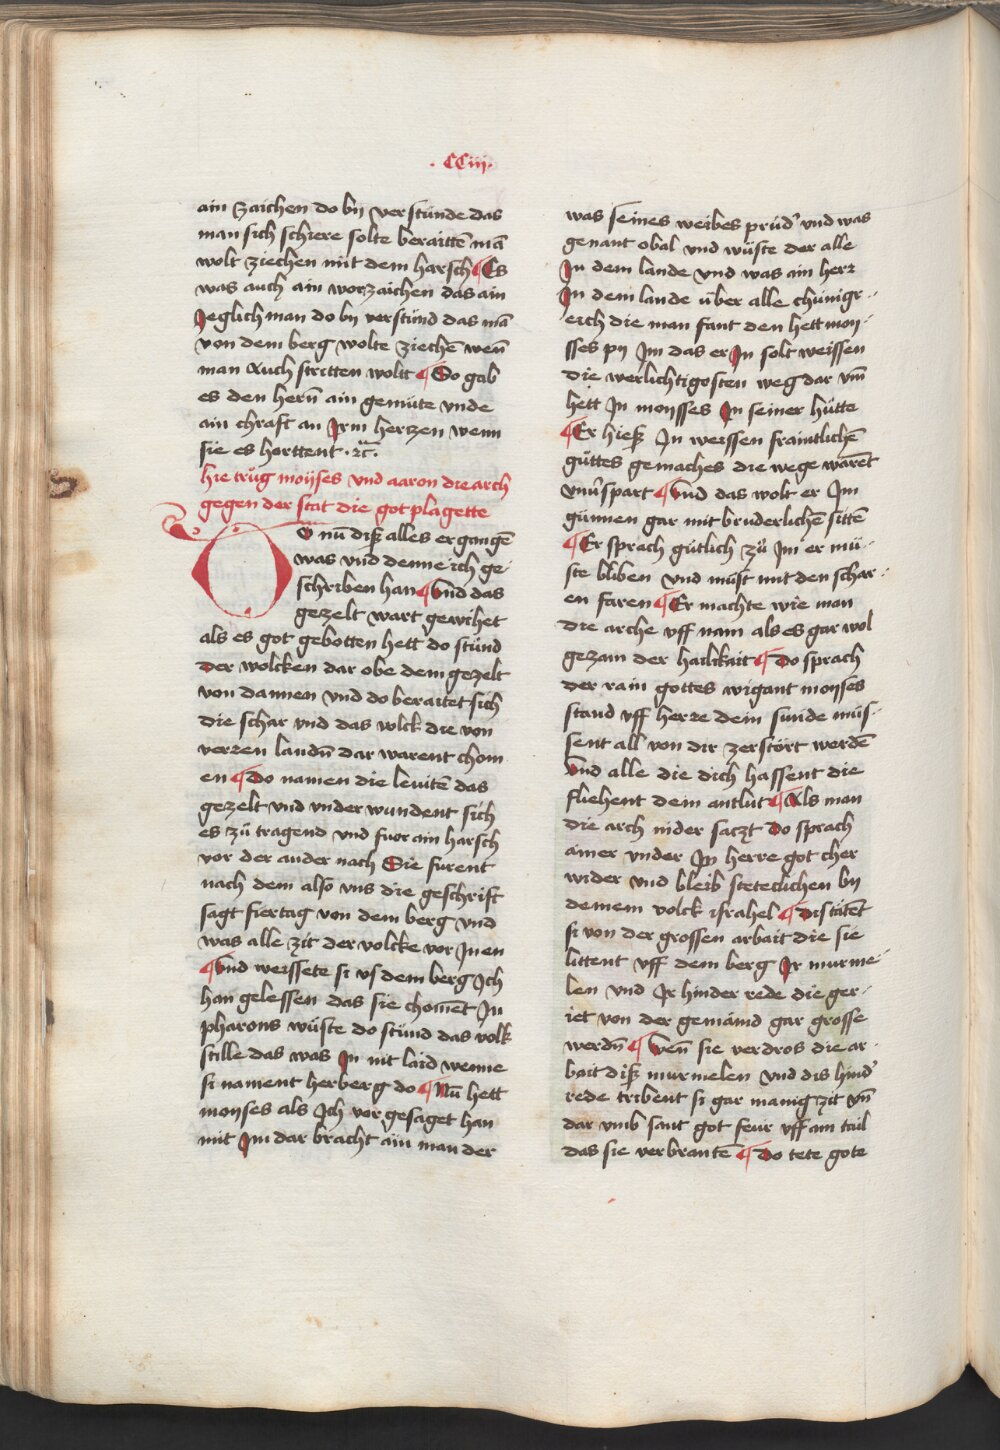 · CCiij ·
ain zaichen do bÿ verstünde das
man sich schiere solte beraitte͂ ma͂
wolt ziechen mit dem harsch ¶ Es
was auch ain worzaichen das ain
Jeglich man do bÿ verstünd das ma͂
von dem berg wolte ziechē wen͂
man Auch stritten woltt ¶ Do gab
es den hern͂ ain gemüte vnde
ain chraft an Jrm hertzen wenn
sie es horttent · ꝛc̄ ·
hie trůg moÿses vnd aaron die arch
gegen der stat die got plagette
DO nu͂ diß alles ergangē
was vnd denne ich ge-
schriben han ¶ Vnd das
gezelt wart gewihet
als es got gebotten hett do stünd
der wolcken dar obe dem gezelt
von dannen vnd do beraitet sich
die schar vnd das volck die von
verren landn̄ dar warent chom
en ¶ Do namen die leuitē das
gezelt vnd vnder wundent sich
es zů tragend vnd fuor ain harsch
vor der ander nach Sie furent
nach dem also vns die geschrift
sagt fiertag von dem berg vnd
was alle zit der volcke vor Jnen
¶ Vnd weissete si vs dem berg Jch
han gelessen das sie chomēt Jn
pharons wüste do stünd das volk
stille das was Jn nit laid wenne
si nament herberg do ¶ Nu͂ hett
moyses als Jch vor gesaget han
mit Jm dar bracht ain man der
was seines weibes prüd' vnd was
genant obal vnd wüste der alle
Jn dem lande vnd was ain herr
Jn dem lande über alle chünigr-
eich die man fant den hett moy-
sses pÿ Jm das er Jn solt weissen
die werlichtigosten weg dar vm̄
hett Jn moysses Jn seiner hütte
¶ Er hieß Jn weissen fraintlichē
gůttes gemaches die wege warēt
vnu͂spart ¶ Vnd das wolt er Jm
günnen gar mit bruderlichē sittē
¶ Er sprach gütlich zů Jm er mü-
ste bliben vnd můst mit den schar-
en faren ¶ Er machte wie man
die arche vff nam als es gar wol
gezam der hailikait ¶ Do sprach
der rain gottes wigant moyses
stand vff herre dein funde müs-
sent all von dir zerstört werdē
Vnd alle die dich hassent die
fliehent dem antlut ¶ Als man
die arch nider saczt Do sprach
ainer vnder Jn herre got cher
wider vnd bleib steteclichen bÿ
deinem volck israhel ¶ Dis tätēt
si von der grossen arbait die sie
littent vff dem berg Jr murme-
len vnd Jr hinder rede die ger-
iet von der gemaind gar grosse
werdn̄ ¶ Wen͂ sie verdros die ar-
bait diß murmelen vnd dis hind'
rede tribent si gar manig zit vn͂
dar vmb sant got feur vff ain tail
das sie verbrantē ¶ Do tete gote